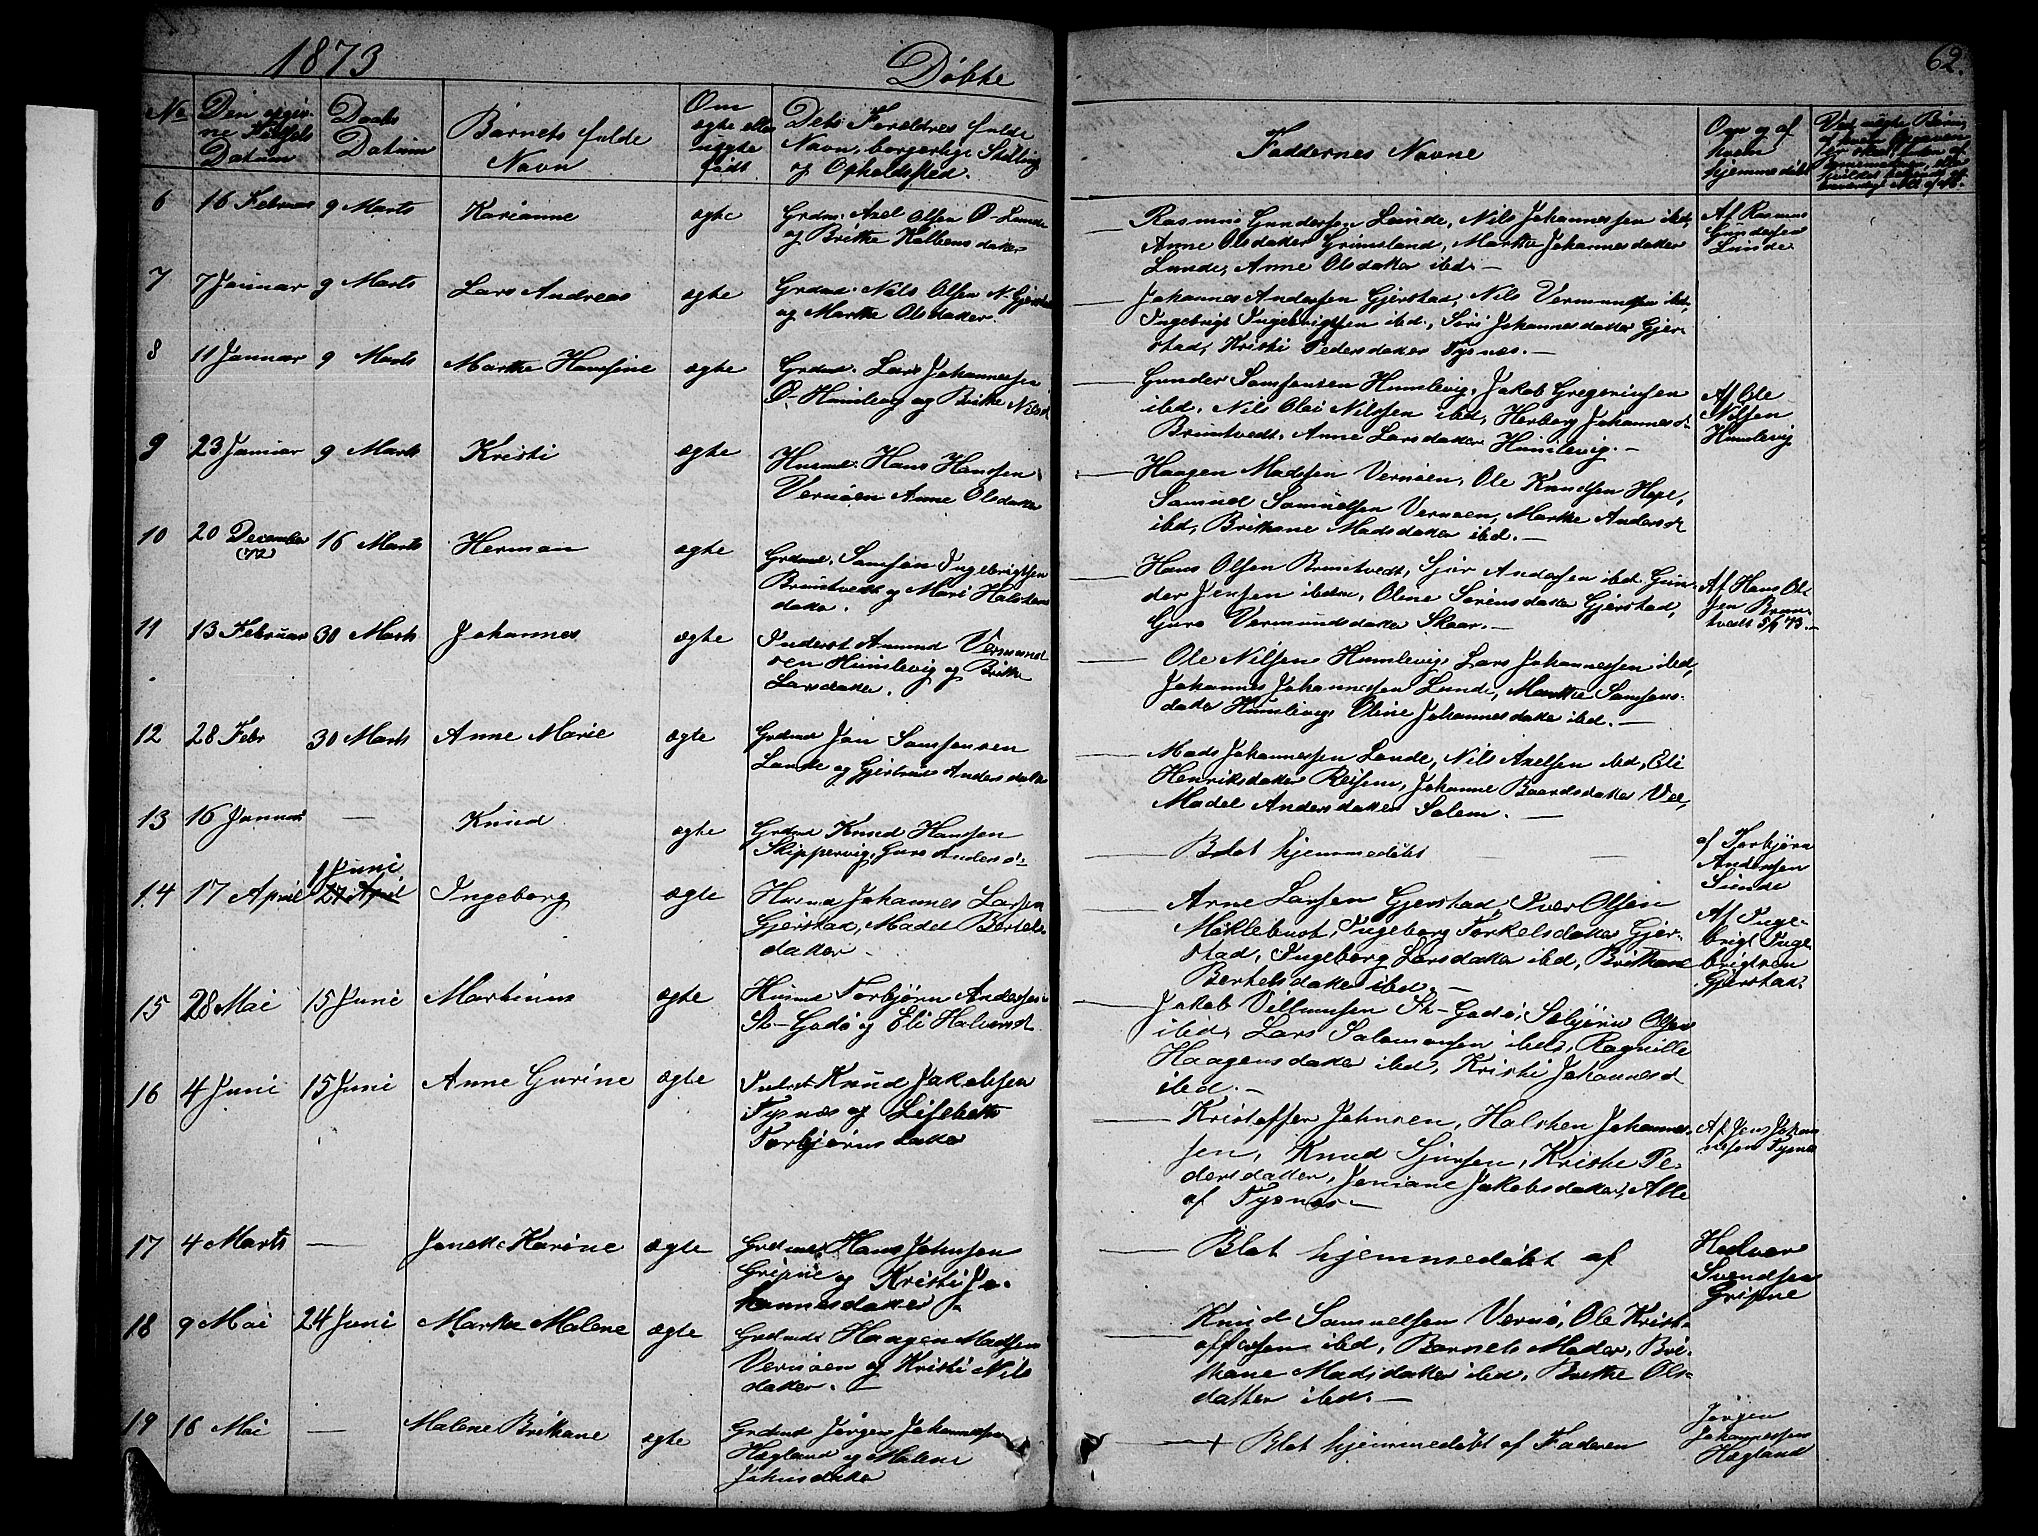 1873
Døbte
62.
No
Den opgivne Fødsels Datum
Daabs Datum
Barnets fulde Navn
Om ægte eller uægte født
Dets Forældres fulde Navn, borgerlige Stilling og Opholdssted.
Faddernes Navne
Om og af hvem hjemmedøbt
6
16 Februar
9 Marts
Karianne
ægte
Grdm. Axel Olsen Ø-Lunde
og Brithe Kolbensdater
Rasmus Gundersen Lunde, Nils Johannessen ibd,
Anne Olsdater Grimsland, Marthe Johannesdater
Lunde, Anne Olsdater ibd. —
Af Rasmus
Gundersen
Lunde
7
7 Januar
9 Marts
Lars Andreas
ægte
Grdmd. Nils Olsen N-Gjerstad
og Marthe Olsdater.
Johannes Andersen Gjerstad, Nils Vermundsen ibd,
Ingebrigt Ingebrigtsen ibd., Siri Johannesdater Gjer-
stad, Kristi Pedersdater Tysnes. —
8
11 Januar
9 Marts
Marthe Hansine
ægte
Grdmd. Lars Johannessen
Ø-Humlevig og Brithe Nilsd
Gunder Samsonsen Humlevig, Jakob Gregeriussen
ibd, Nils Olai Nilssen ibd, Herborg Johannesd
Bruntvedt, Anne Larsdater Humlevig. —
Af Ole
Nilsen
Humlevig
9
23 Januar
9 Marts
Kristi
ægte
Husmd. Hans Hanssen
Vernøen Anne Olsdater
Haagen Madssen Vernøen, Ole Knudsen Hope,
Samuel Samuelsen Vernøen, Marthe Andersd
ibd, Brithane Madsdater ibd. —
10
20 December
(72)
16 Marts
Herman
ægte
Grdmd. Samson Ingebrigtsen
Bruntvedt og Mari Halstens
dater.
Hans Olsen Bruntvedt, Sjur Andersen ibd. Gun-
der Jensen ibdm, Oline Sørensdater Gjerstad,
Guro Vermundsdater Skaar. —
Af Hans Ol-
sen Brun-
tvedt 5/1 73. —
11
13 Februar
30 Marts
Johannes
ægte
Inderst Amund Vermund
sen Humlevig og Brithe
Larsdater.
Ole Nilsen Humlevig, Lars Johannessen ibd,
Johannes Johannessen Lunde, Marthe Samsons-
dater Humlevig, Oline Johannesdater ibd. —
12
28 Febr
30 Marts
Anne Marie
ægte
Grdmd Jan Samsonsen
Lunde og Gjertrud Andersdater
Mads Johannessen Lunde, Nils Axelsen ibd, Eli
Henriksdater Reisen, Johanne Baardsdater Vee,
Madel Andersdater Solem. —
13
16 Januar
—
Knud
ægte
Grdmd Knud Hanssen
Skippervig, Guro Anders d:
Blot hjemmedøbt — —
af Torbjørn
Andersen
Lunde
14
17 April
1 Juni
27 April
Ingeborg
ægte
Husmd Johannes Larsen
Gjerstad, Madel Bertels-
dater —
Arne Larsen Gjerstad Iver Olsen
Møklebust, Ingeborg Torkelsdater Gjer-
stad, Ingeborg Larsdater ibd, Brithane
Bertelsdater ibd. —
Af Inge-
brigt Inge
brigtsen
Gjerstad.
15
28 Mai
15 Juni
Martinus
ægte
Husmd Torbjørn Andersen
St-Godø og Eli Halvorsd
Jakob Villumsen St-Godø, Sæbjørn Olsen
ibd, Lars Salomonsen ibd, Ragnille
Haagensdater ibd, Kristi Johannesd
ibd. —
16
4 Juni
15 Juni
Anne Gurine
ægte
Inderst Knud Jakobsen
Tysnæs og Lisebeth
Torbjørnsdater
Kristoffer Johnsen, Halsten Johannes-
sen, Knud Sjursen, Kristi Pe-
dersdater, Joniane Jakobsdater, Alle
af Tysnæs. —
Af Jens Johan
nessen Tysnæs
17
4 Marts
—
Janette Karine
ægte
Grdmd Hans Johnsen
Gripne og Kristi Jo-
hannesdater
Blot hjemmedøbt af
Halvor
Svendsen
Gripne
18
9 Mai
24 Juni
Marthe Malene
ægte
Grdmd Haagen Madsen
Vernøen og Kristi Nils
dater. —
Knud Samuelsen Vernø, Ole Krist-
offersen ibd, Barnets Moder, Bri-
thane Madsdater ibd, Brithe Ols-
datter ibd. —
19
16 Mai
—
Malene Brithane
ægte
Grdmd Jørgen Johannessen
Hægland og Malene
Johnsdater
+ Blot hjemmedøbt af Faderen
Jørgen
Johannessen
Hægland